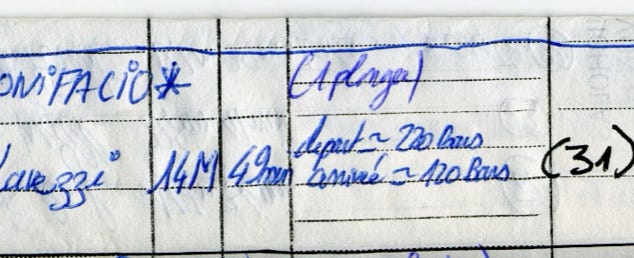 ONIFACIO* (1 plongée)
Lavezzi 14M 49min depart = 220 Bars (31)
arrivée = 120 Bars